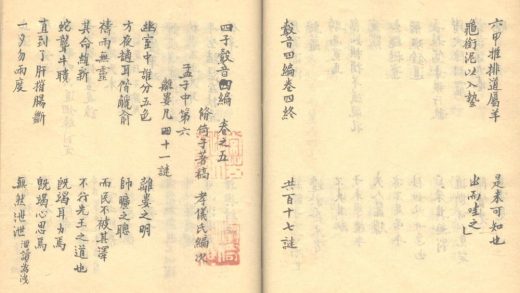 六甲推排道屬羊 是未可知也
龜銜泥以入蟄 出而哇之
鷇音四編卷四終 共百十七謎
四子鷇音四編 卷之五
倚子著稿 孝儀氏編次
孟子中第六
離婁凡四十一謎
幽室中誰分五色 離婁之明
方夜適耳 師曠之聰
禱雨無靈 而民不被其澤
其命維新 不行先王之道也
蛇聾牛聵 既竭耳力焉
直到了肝摧腸斷 既竭心思焉
一夕勿兩度 無然泄泄